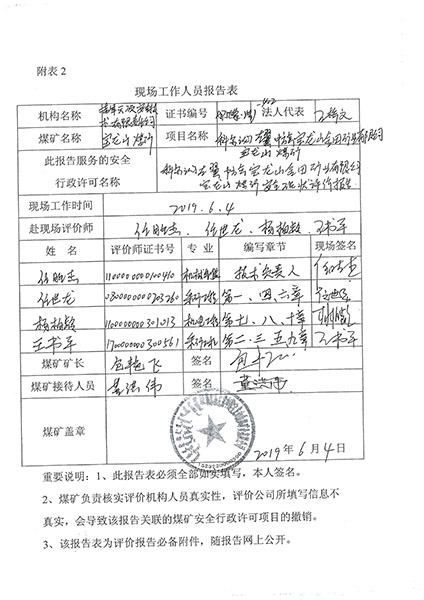 附表2
现场工作人员报告表
机构名称 证书编号 法人代表
煤矿名称 宝龙山煤矿 项目名称 科尔沁左翼中旗宝龙山金田矿业有限公司
宝龙山煤矿
此报告服务的安全
行政许可名称
科尔沁左翼中旗宝龙山金田矿业有限公司
宝龙山煤矿安全现状评价报告
现场工作时间 2019.6.4
赴现场评价师 任世龙、杨梅毅、王书军
姓名 评价师证书号 专业 编写章节 现场签名
1100000000100410 技术负责人
任世龙 0800000000203260 采矿工程 第一、四、六章
杨梅毅 1100000000301013 机电工程 第七、八、十章
王书军 1700000000300561 第二、三、五、九章 王书军
煤矿矿长 包艳飞 签名
煤矿接待人员 签名
煤矿盖章
2019年6月4日
重要说明：1、此报告表必须全部如实填写，本人签名。
2、煤矿负责核实评价机构人员真实性，评价公司所填写信息不
真实，会导致该报告关联的煤矿安全行政许可项目的撤销。
3、该报告表为评价报告必备附件，随报告网上公开。